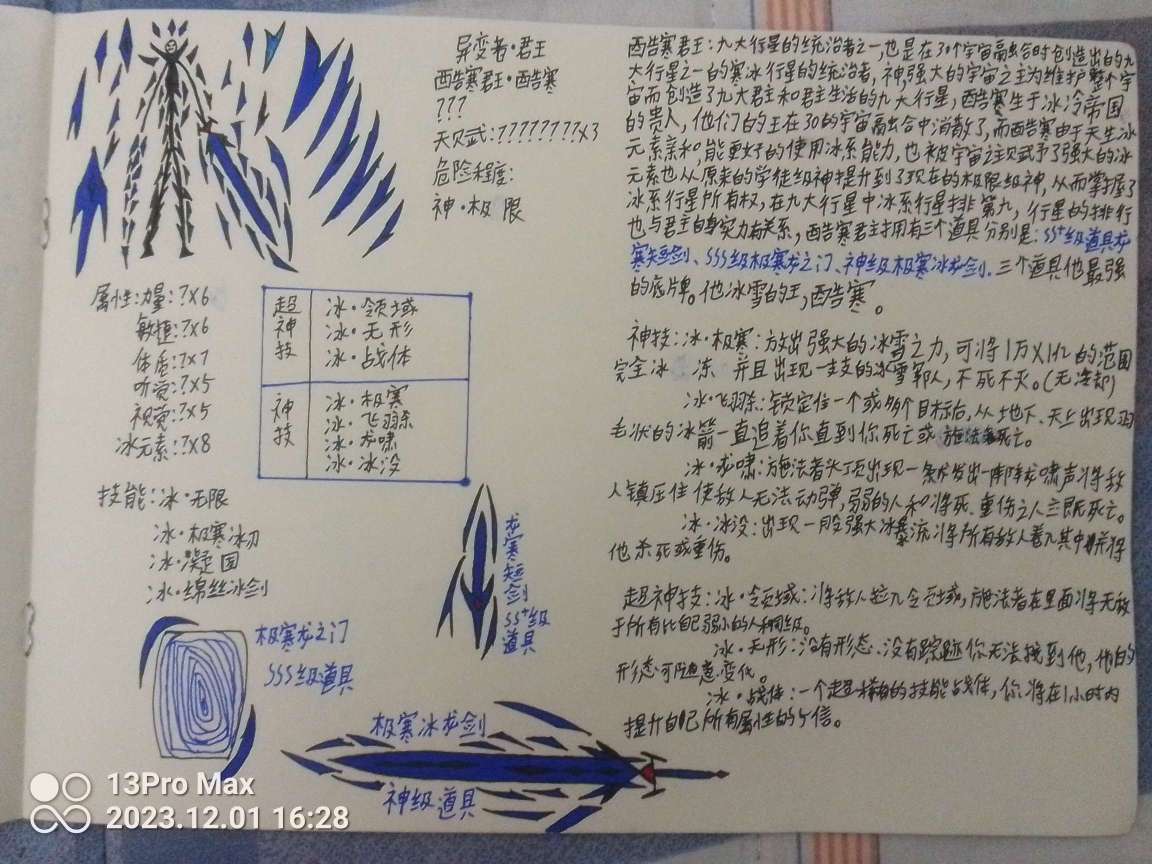 异变者·君王
西告寒君王·西告寒
???
天贝武:????????×3
危险程度:
神·极 限
属性:力量:?×6
敏捷:?×6
体质:?×7
听觉:?×5
视觉:?×5
冰元素:?×8
超神技
冰·领域
冰·无形
冰·战体
神技
冰·极寒
冰·飞羽杀
冰·龙啸
冰·冰没
技能:冰·无限
冰·极寒冰刃
冰·凝固
冰·绵丝冰剑
极寒龙之门
SSS级道具
龙寒短剑
SS⁺级道具
极寒冰龙剑
神级道具
西告寒君王:九大行星的统治者之一,也是在30个宇宙融合时创造出的九
大行星之一的寒冰行星的统治者,神,强大的宇宙之主为维护整个宇
宙而创造了九大君主和君主生活的九大行星,西告寒生于冰冷帝国
的贵人,他们的王在30的宇宙融合中消散了,而西告寒由于天生冰
元素亲和,能更好的使用冰系能力,也被宇宙之主贝武予了强大的冰
元素也从原来的学徒级神提升到了现在的极限级神,从而掌握了
冰系行星所有权,在九大行星中冰系行星排第九,行星的排行
也与君主自身实力有关系,西告寒君主拥有三个道具分别是:SS⁺级道具龙
寒短剑、SSS级极寒龙之门、神级极寒冰龙剑.三个道具他最强
的底牌。他冰雪的王,西告寒。
神技:冰·极寒:放出强大的冰雪之力,可将1万×1亿的范围
完全冰 冻 并且出现一支支的冰雪军人,不死不灭。(无冷却)
冰·飞羽杀:锁定住一个或多个目标后,从地下、天上出现羽
毛状的冰箭一直追着你直到你死亡或 施法者死亡。
冰·龙啸:施法者头顶出现一条龙发出一阵阵龙啸声将敌
人镇压住使敌人无法动弹,弱的人和将死、重伤之人立即死亡。
冰·冰没:出现一股强大冰暴流将所有敌人卷入其中并将
他杀死或重伤。
超神技:冰·领域:将敌人拉入领域,施法者在里面将无敌
于所有比自己弱小的人和同级。
冰·无形:没有形态、没有踪迹你无法找到他,他的
形态可随意变化。
冰·战体:一个超模的技能战体,你将在1小时内
提升自己所有属性的5倍。
13Pro Max
2023.12.01 16:28